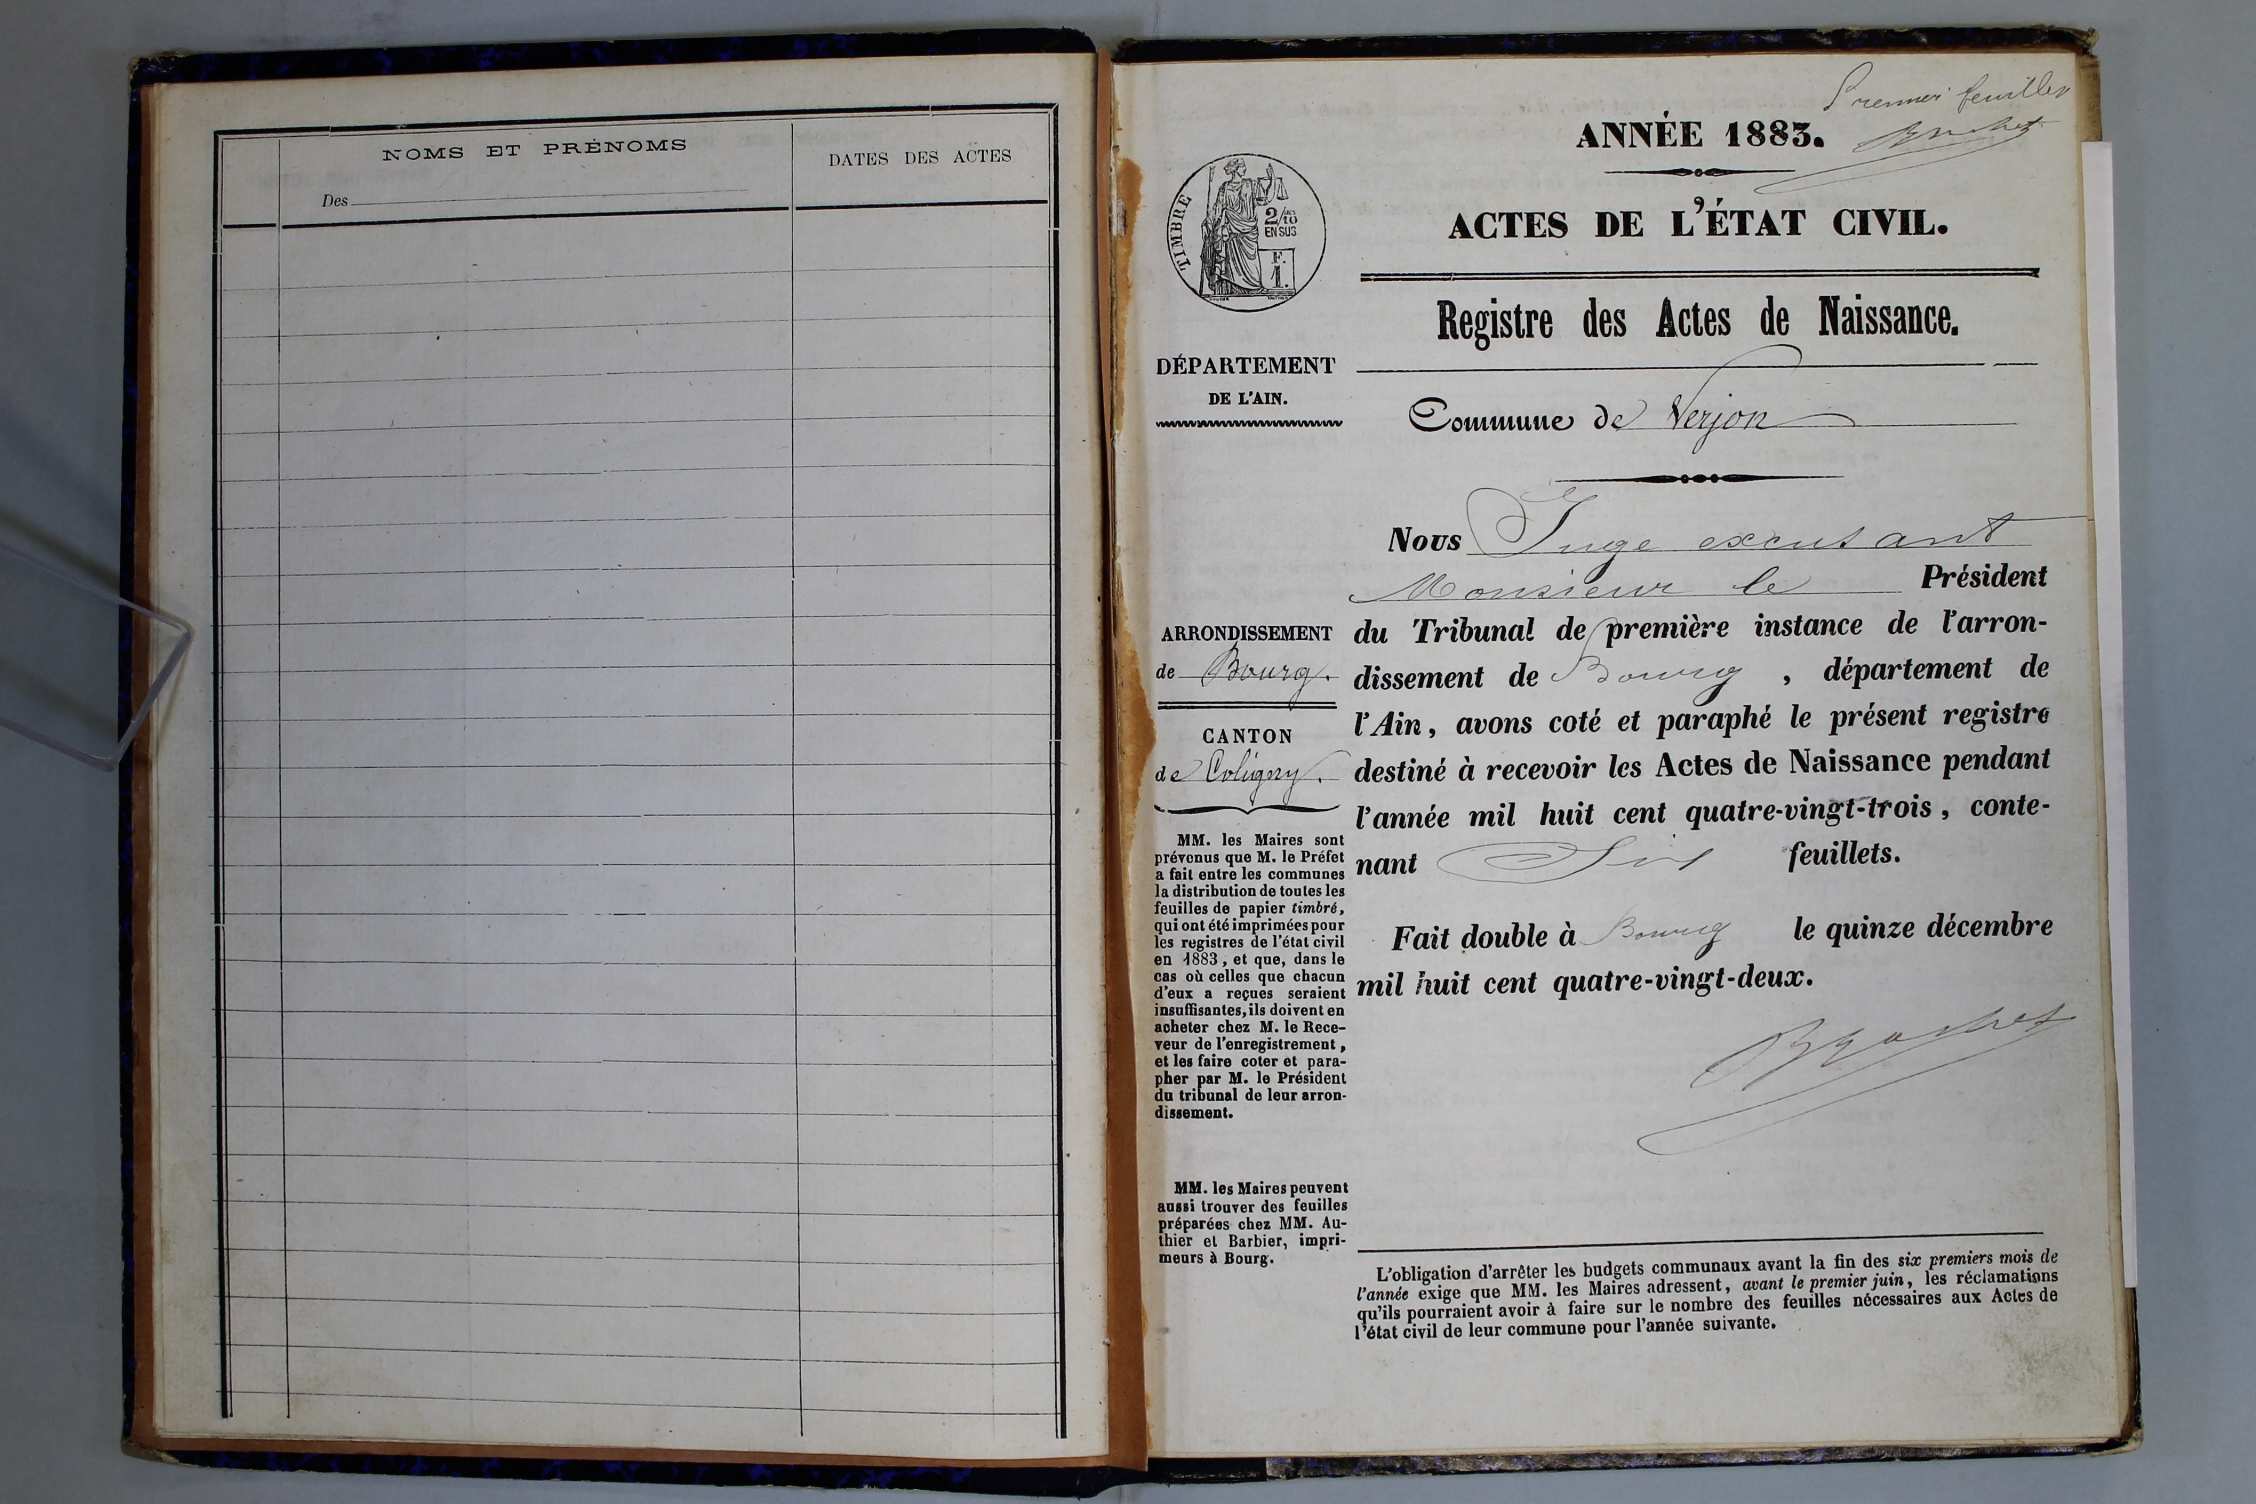 NOMS ET PRÉNOMS
DATES DES ACTES
Des
Premier feuillet
ANNÉE 1883.
ACTES DE L'ÉTAT CIVIL.
TIMBRE
2/10
EN SUS
F.
1.
Registre des Actes de Naissance.
DÉPARTEMENT
DE L'AIN.
Commune de Verjon
Nous Juge excusant
Monsieur le Président
du Tribunal de première instance de l'arron-
dissement de Bourg, département de
l'Ain, avons coté et paraphé le présent registre
destiné à recevoir les Actes de Naissance pendant
l'année mil huit cent quatre-vingt-trois, conte-
nant Six feuillets.
Fait double à Bourg le quinze décembre
mil huit cent quatre-vingt-deux.
ARRONDISSEMENT
de Bourg.
CANTON
de Coligny.
MM. les Maires sont
prévenus que M. le Préfet
a fait entre les communes
la distribution de toutes les
feuilles de papier timbré,
qui ont été imprimées pour
les registres de l'état civil
en 1883, et que, dans le
cas où celles que chacun
d'eux a reçues seraient
insuffisantes, ils doivent en
acheter chez M. le Rece-
veur de l'enregistrement,
et les faire coter et para-
pher par M. le Président
du tribunal de leur arron-
dissement.
MM. les Maires peuvent
aussi trouver des feuilles
préparées chez MM. Au-
thier et Barbier, impri-
meurs à Bourg.
L'obligation d'arrêter les budgets communaux avant la fin des six premiers mois de
l'année exige que MM. les Maires adressent, avant le premier juin, les réclamations
qu'ils pourraient avoir à faire sur le nombre des feuilles nécessaires aux Actes de
l'état civil de leur commune pour l'année suivante.